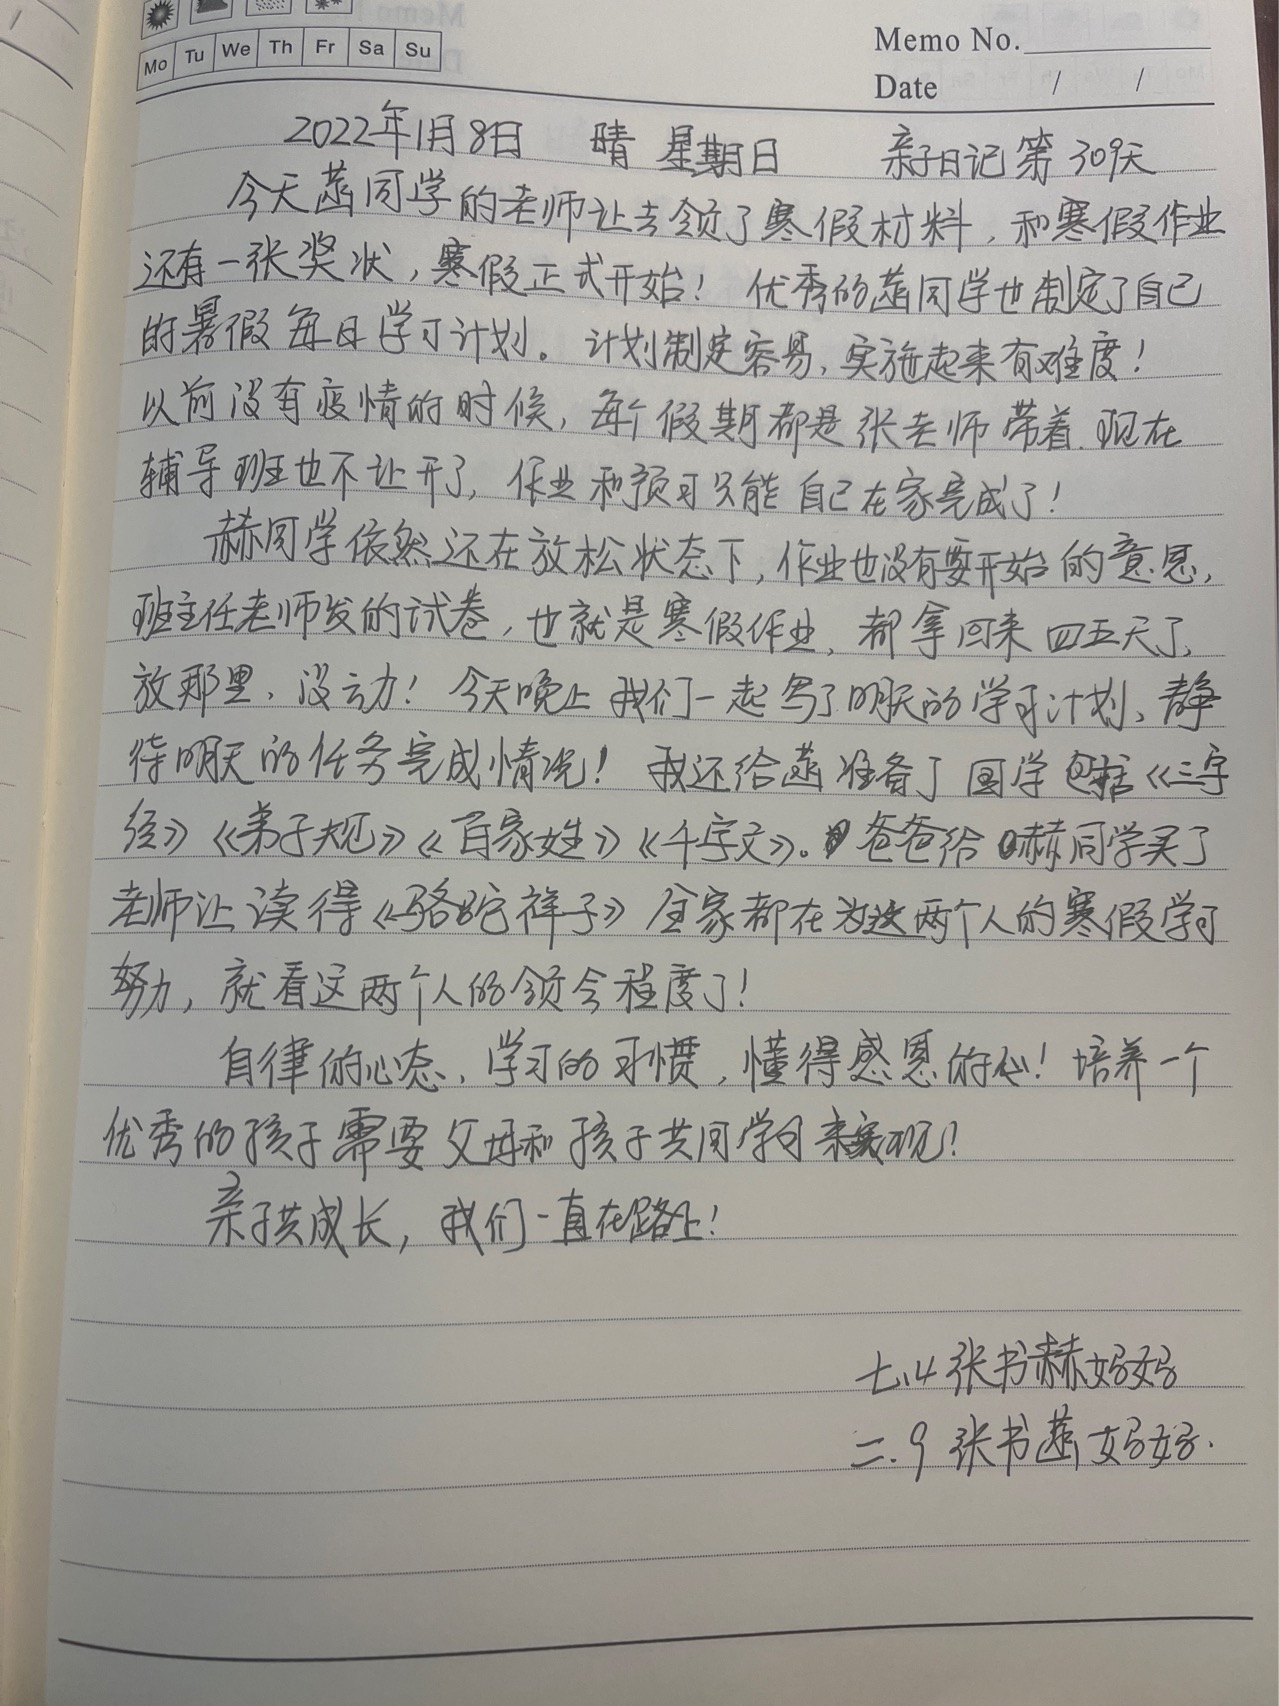 Mo Tu We Th Fr Sa Su
Memo No.
Date / /
2022年1月8日 晴 星期日 亲子日记第309天
今天菡同学的老师让去领了寒假材料，和寒假作业
还有一张奖状，寒假正式开始！优秀的菡同学也制定了自己
的暑假每日学习计划。计划制定容易，实施起来有难度！
以前没有疫情的时候，每个假期都是张老师带着.现在
辅导班也不让开了，作业和预习只能自己在家完成了！
赫同学依然还在放松状态下，作业也没有要开始的意思，
班主任老师发的试卷，也就是寒假作业，都拿回来四五天了，
放那里，没动！今天晚上我们一起写了明天的学习计划，静
待明天的任务完成情况！我还给菡准备了国学包括《三字
经》《弟子规》《百家姓》《千字文》。爸爸给赫同学买了
老师让读得《骆驼祥子》全家都在为这两个人的寒假学习
努力，就看这两个人的领会程度了！
自律的心态，学习的习惯，懂得感恩的心！培养一个
优秀的孩子需要父母和孩子共同学习来实现！
亲子共成长，我们一直在路上！
七.4张书赫妈妈
二.9张书菡妈妈.